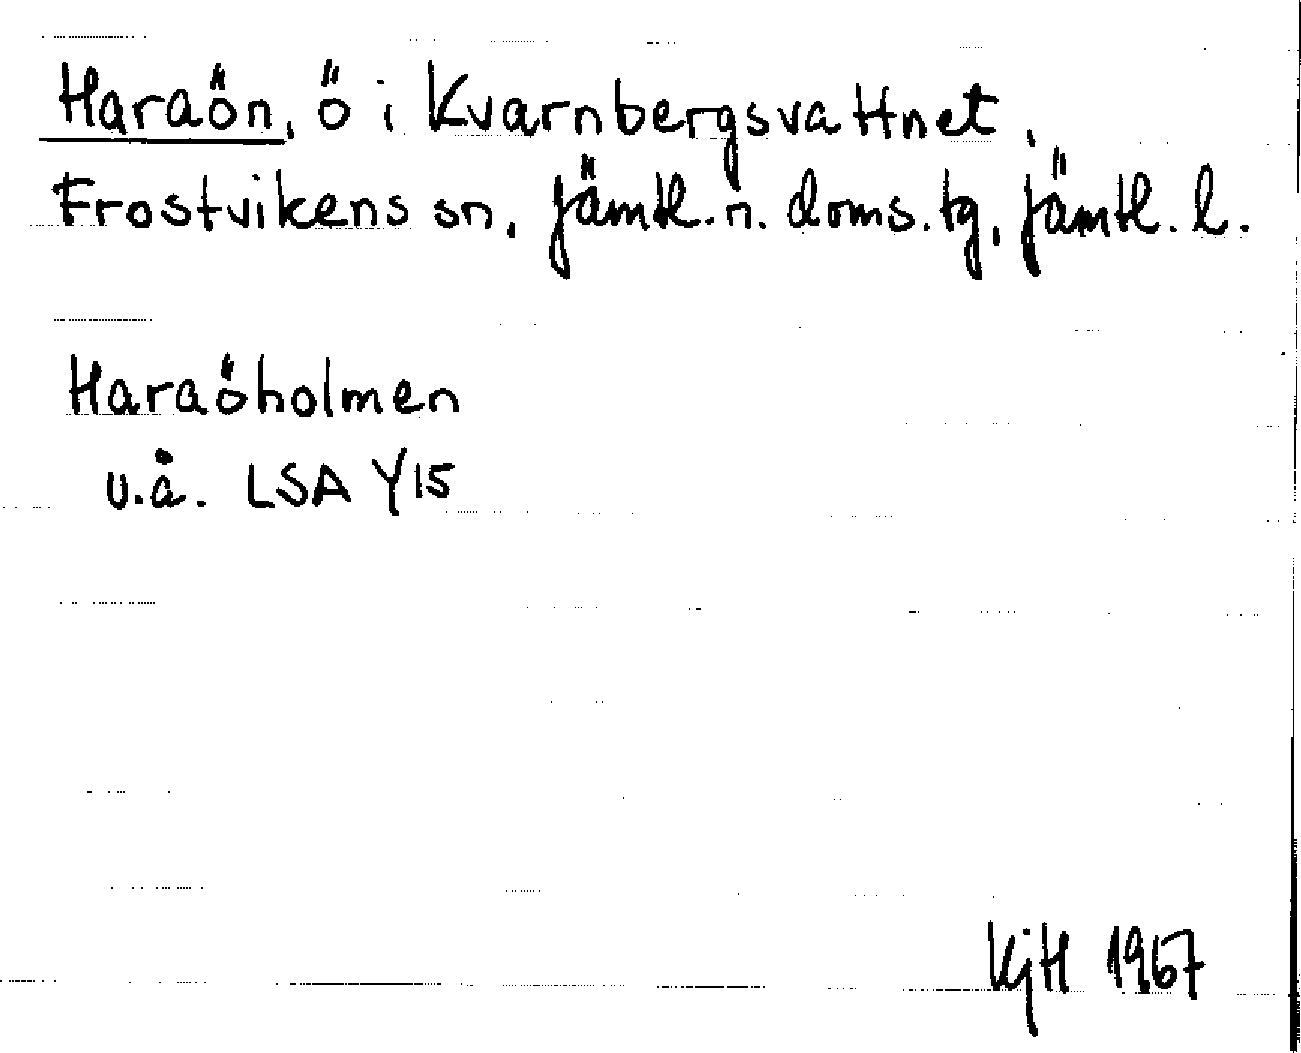 Haraön, ö i Kvarnbergsvattnet,
Frostvikens sn, Jämtl. n. doms. tg, Jämtl. l.
Haraöholmen
u.å. LSA Y15
KjH 1967